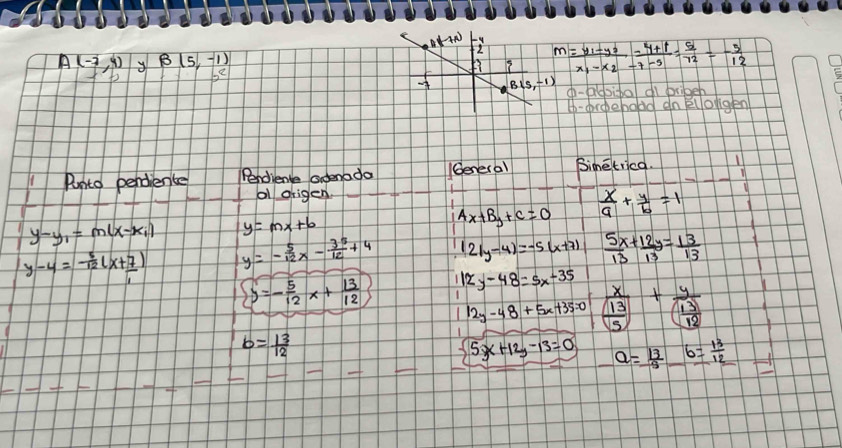 A(-7,4) y B(5,-1)
4
2
-7
B(5,-1)
m = y₁-y₂ / x₁-x₂ = 4+1 / -7-5 = 5/-12 = -5/12
b-ordenada en el origen
Punto pendiente
y-y₁ = m(x-x₁)
y-4 = -5/12(x+7/1)
Pendiente ordenada
al origen
y = mx+b
y = -5/12x - 35/12 + 4
y = -5/12 x + 13/12
b = 13/12
General
Ax+By+C=0
12(y-4)=-5(x+7)
12y-48=5x-35
12y-48+5x+35=0
5x+12y-13=0
Simétrica.
x/a + y/b = 1
5x/13 + 12y/13 = 13/13
x/(13/5) + y/(13/12)
a = 13/5 b = 13/12